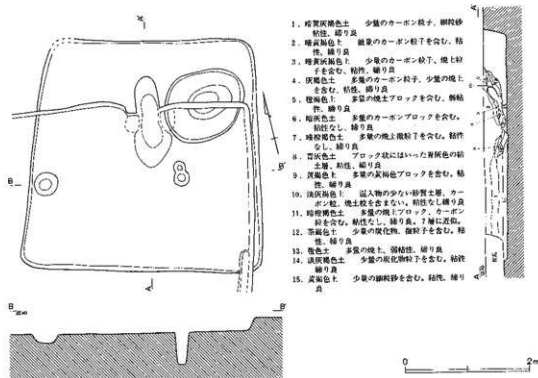 A'
A
B
B'
1. 暗黄灰褐色土 少量のカーボン粒子、細粒砂
粘性、締り良
2. 暗黄褐色土 微量のカーボン粒子を含む、粘
性、締り良
3. 暗黄灰褐色土 少量のカーボン粒子、焼土粒
子を含む、粘性、締り良
4. 灰褐色土 多量のカーボン粒子、少量の焼土
を含む、粘性、締り良
5. 橙褐色土 多量の焼土ブロックを含む、弱粘
性、締り良
6. 暗灰色土 多量のカーボンブロックを含む。
粘性なし、締り良
7. 暗橙褐色土 多量の焼土微粒子を含む。粘性
なし、締り良
8. 青灰色土 ブロック状にはいった青灰色の粘
土層、粘性、締り良
9. 黄褐色土 多量の黄褐色ブロックを含む。粘
性、締り良
10. 淡灰褐色土 混入物の少ない砂質土層、カー
ボン粒、焼土粒を含まない。粘性なし締り良
11. 暗橙褐色土 多量の焼土ブロック、カーボン
粒を含む。粘性なし、締り良。7層に近似。
12. 茶褐色土 少量の炭化物、微粒子を含む。粘
性、締り良
13. 橙色土 多量の焼土、弱粘性、締り良
14. 淡灰褐色土 少量の炭化物粒子を含む。粘性
締り良
15. 黄褐色土 少量の細粒砂を含む。粘性、締り
良
A'
A
B
B'
0 2m